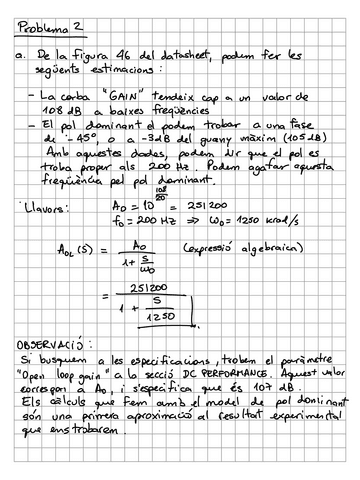 Problema 2
a. De la figura 46 del datasheet, podem fer les
següents estimacions:
- La corba "GAIN" tendeix cap a un valor de
108 dB a baixes freqüències
- El pol dominant el podem trobar a una fase
de -45º, o a -3dB del guany màxim (105 dB)
Amb aquestes dades, podem dir que el pol es
troba proper als 200 Hz. Podem agafar aquesta
freqüència pel pol dominant.
Llavors: A0 = 10^(108/20) = 251200
f0 = 200 Hz ⇒ ω0 = 1250 krad/s
AOL(s) = A0 / (1 + s/ω0) (expressió algebraica)
= 251200 / (1 + s/1250)
OBSERVACIÓ:
Si busquem a les especificacions, trobem el paràmetre
"Open loop gain" a la secció DC PERFORMANCE. Aquest valor
correspon a A0, i s'especifica que és 107 dB.
Els càlculs que fem amb el model de pol dominant
són una primera aproximació al resultat experimental
que ens trobarem.